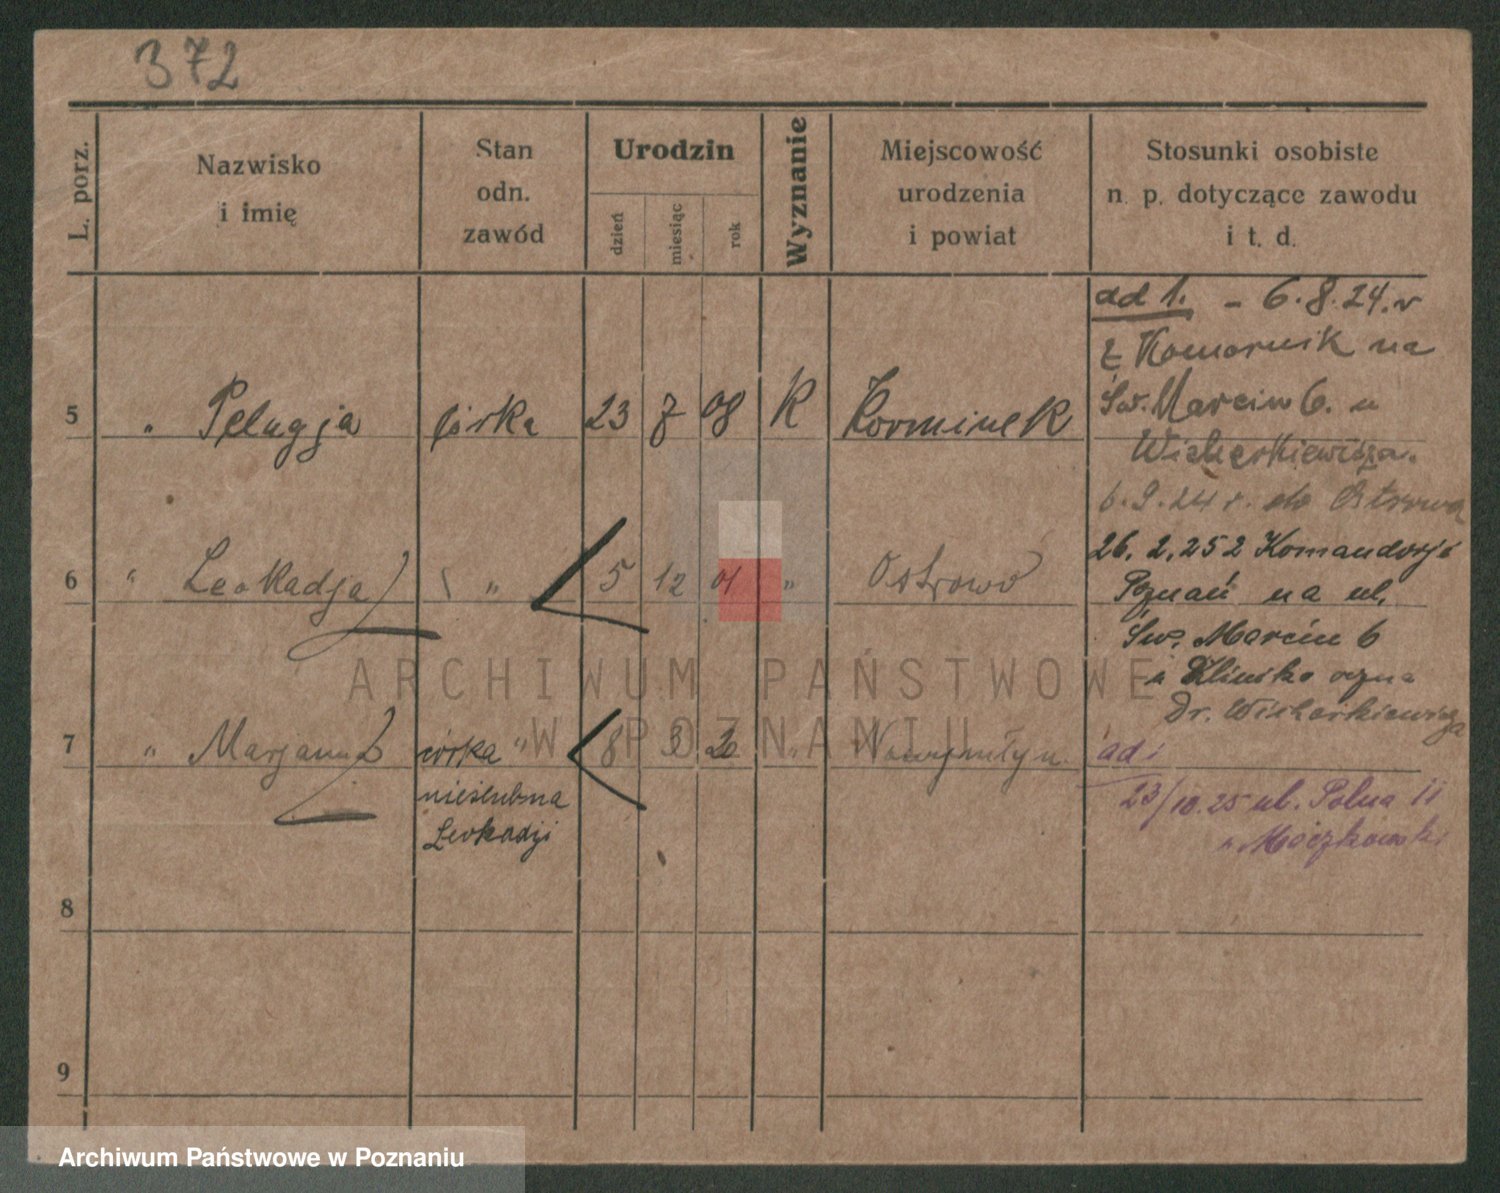 372
L. porz.
Nazwisko
i imię
Stan
odn.
zawód
Urodzin
dzień
miesiąc
rok
Wyznanie
Miejscowość
urodzenia
i powiat
Stosunki osobiste
n. p. dotyczące zawodu
i t. d.
ad 1. - 6.8.24. v
z Komornik na
Św. Marcin 6. u
Wicherkiewicza.
6.9.24 r. do Ostrowa
5 " Pelagja córka 23 7 08 K Korminek
26. 2. 252 Komandorji
Poznań na ul.
6 " Leokadja " 5 12 01 " Ostrowo
Św. Marcin 6
u Klinika oczna
Dr. Wicherkiewicza
7 " Marjanna córka " 8 3 " Nowymłyn
nieślubna
Leokadji
ad 1
23/10.25 ul. Polna 11
u Moczkowski
8
9
ARCHIWUM PAŃSTWOWE
W POZNANIU
Archiwum Państwowe w Poznaniu